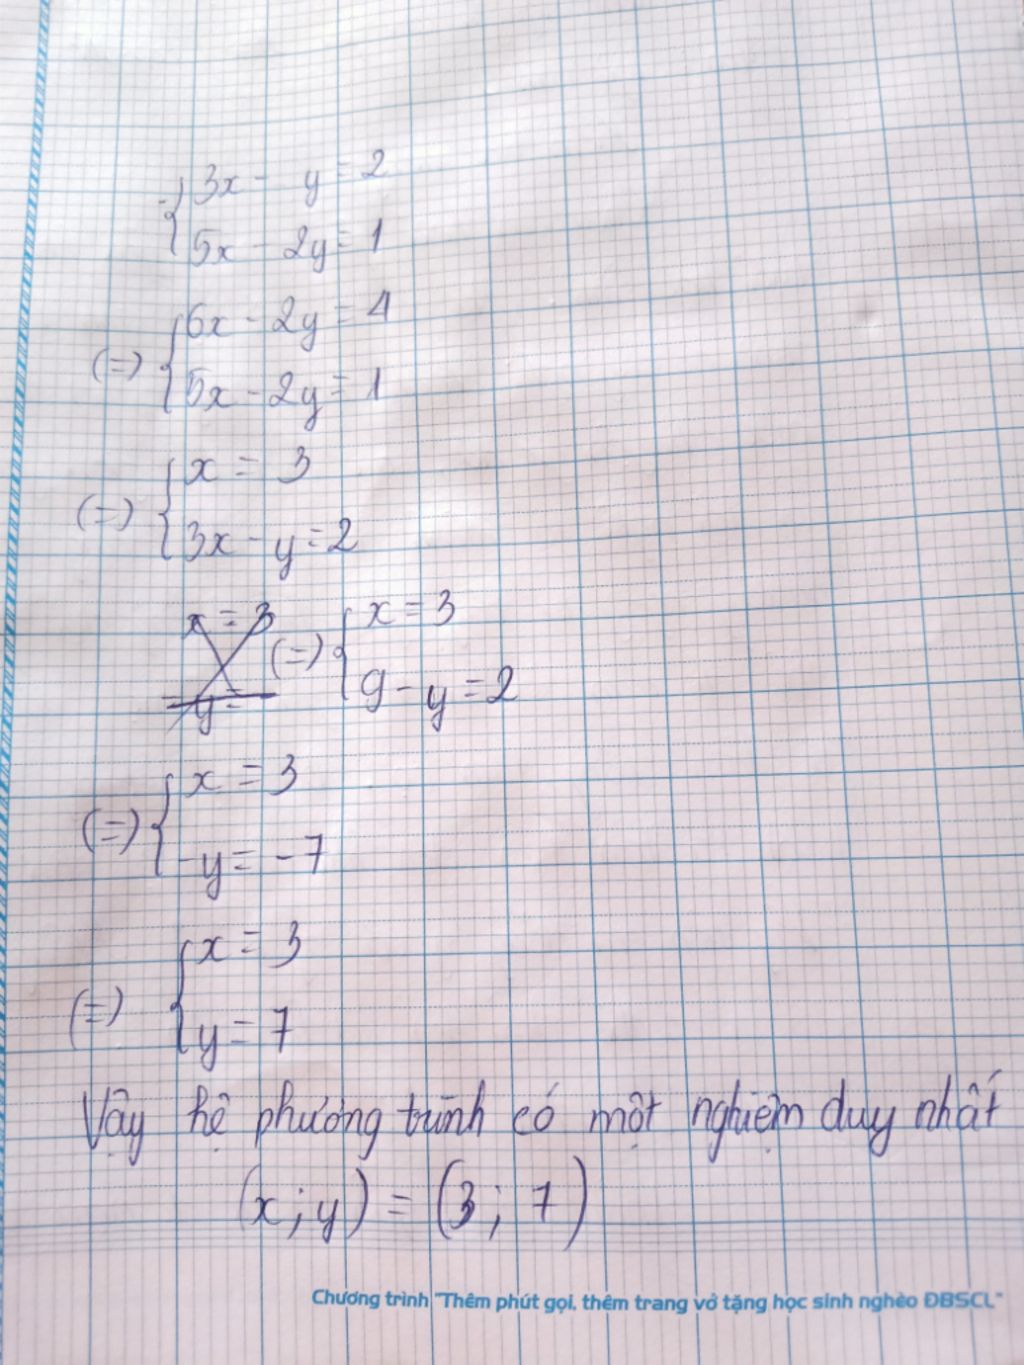 { 3x - y = 2
5x - 2y = 1
(=) { 6x - 2y = 4
5x - 2y = 1
(=) { x = 3
3x - y = 2
x = 3
y =
(=) { x = 3
9 - y = 2
(=) { x = 3
-y = -7
(=) { x = 3
y = 7
Vậy hệ phương trình có một nghiệm duy nhất
(x; y) = (3; 7)
Chương trình "Thêm phút gọi, thêm trang vở tặng học sinh nghèo ĐBSCL"